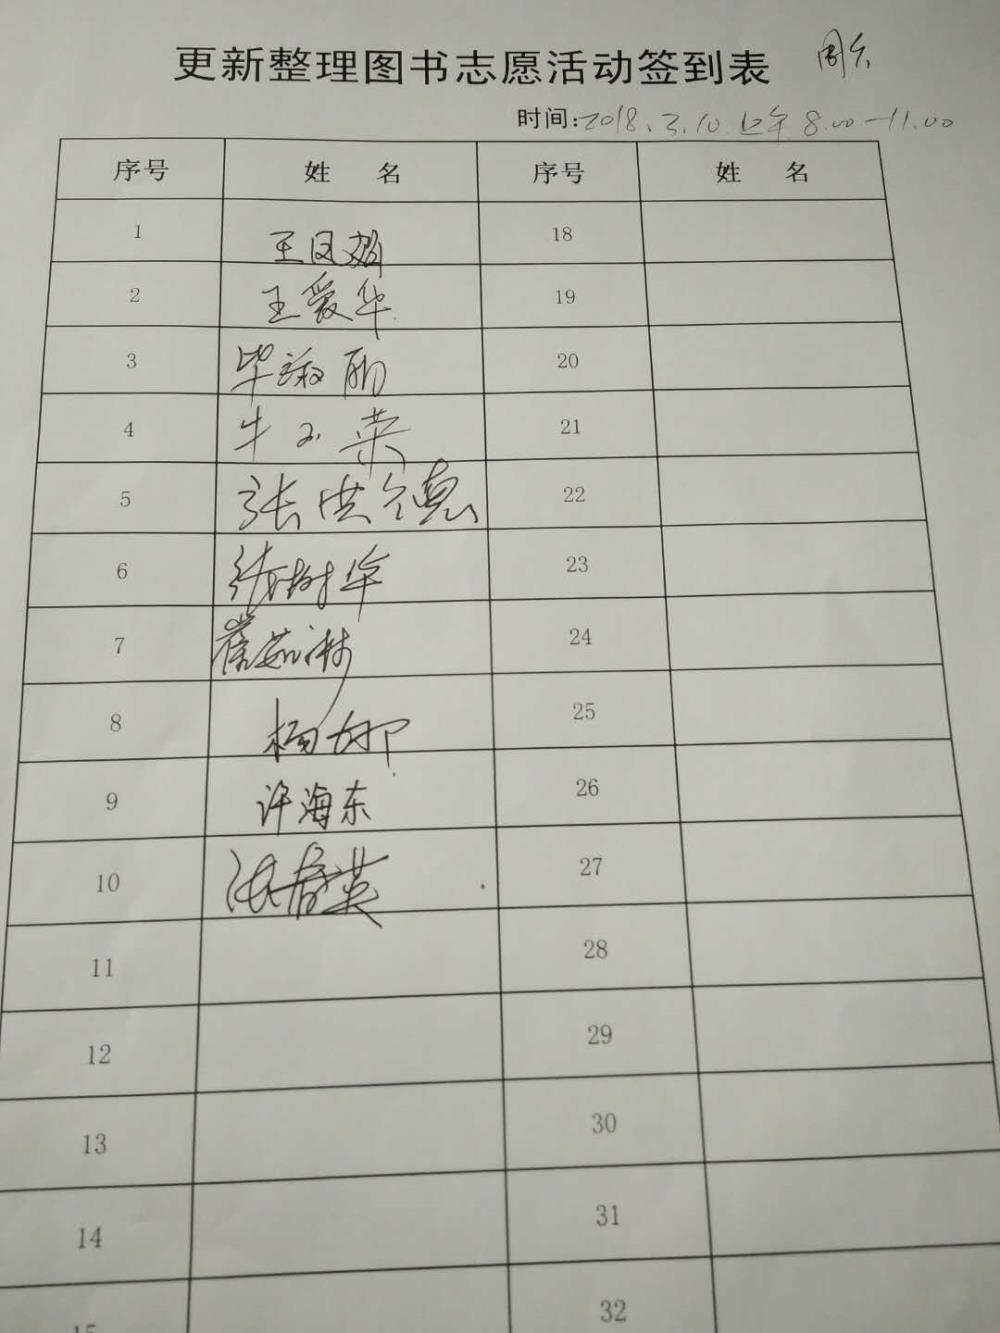 更新整理图书志愿活动签到表 周六
时间:2018.3.10 上午 8.00-11.00
序号 姓 名 序号 姓 名
1 王凤 18
2 王爱华 19
3 毕淑丽 20
4 牛玉荣 21
5 张洪德 22
6 张树华 23
7 24
8 杨娜 25
9 许海东 26
10 张春英 27
11 28
12 29
13 30
14 31
15 32